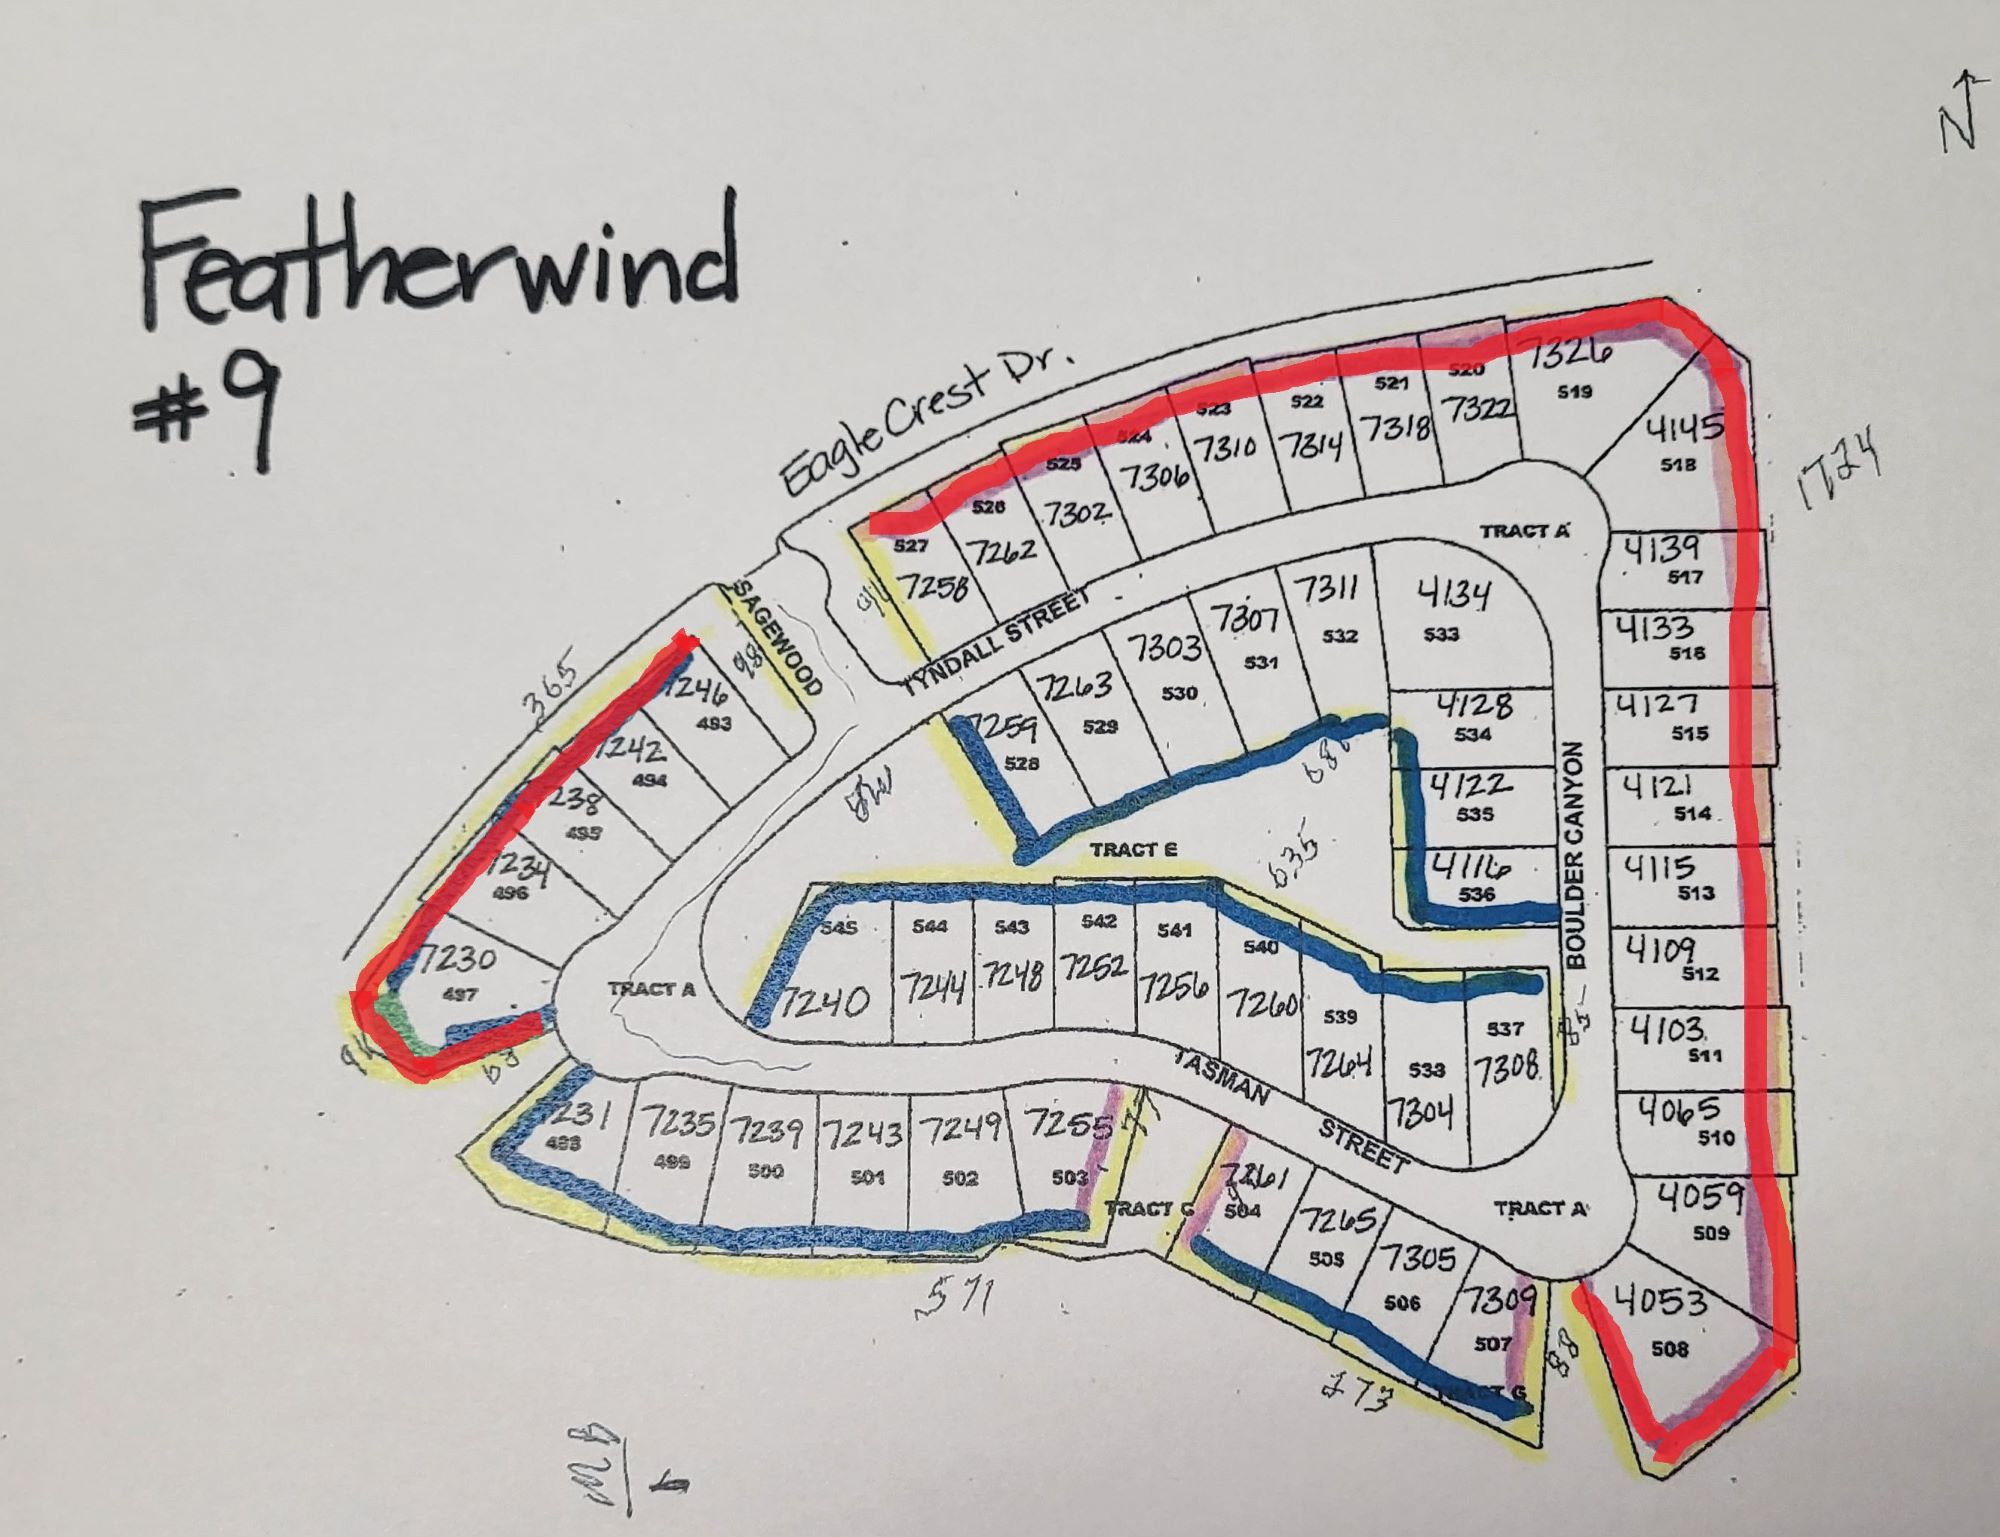 N
Featherwind
#9
Eagle Crest Dr.
1724
7326
519
520
7322
521
7318
522
7314
523
7310
524
7306
525
7302
526
7262
527
7258
4145
518
TRACT A
4139
517
4133
516
4127
515
4121
514
4115
513
4109
512
4103
511
4065
510
4059
509
4053
508
SAGEWOOD
98
TYNDALL STREET
365
7246
493
7242
494
238
495
7234
496
7230
497
68
7259
528
7263
529
7303
530
7307
531
7311
532
4134
533
4128
534
4122
535
4116
536
BOULDER CANYON
TRACT E
635
545
7240
544
7244
543
7248
542
7252
541
7256
540
7260
539
7264
538
7304
537
7308
85
TRACT A
TASMAN STREET
231
498
7235
499
7239
500
7243
501
7249
502
7255
503
77
TRACT G
7261
504
7265
505
7305
506
7309
507
TRACT G
TRACT A
88
571
273